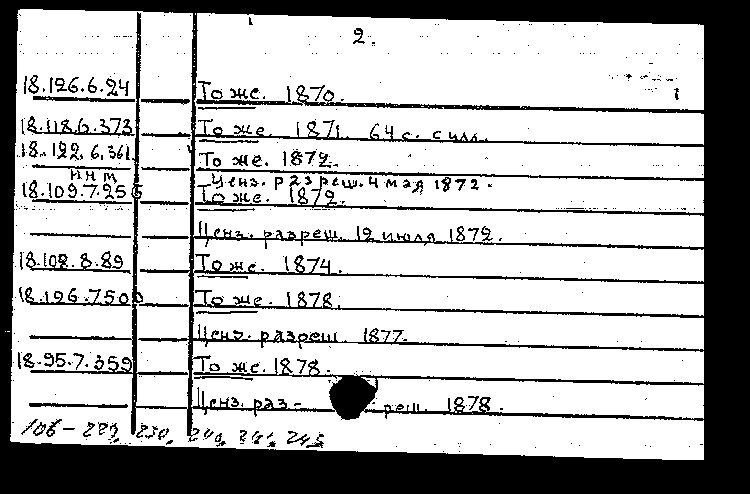 2.
18.126.6.24 То же. 1870.
18.118.6.373 То же. 1871. 64 с. с илл.
18.122.6.361 То же. 1872.
Ценз. разреш. 4 мая 1872.
18.109.7.255 То же. 1872.
Ценз. разреш. 12 июля 1872.
18.108.8.89 То же. 1874.
18.126.7.500 То же. 1878.
Ценз. разреш. 1877.
18.95.7.359 То же. 1878.
Ценз. раз- реш. 1878.
106 - 230,